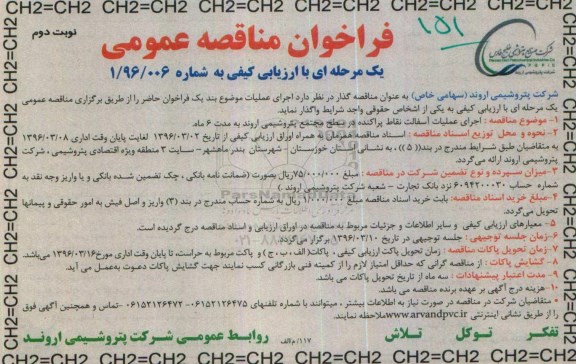 نوبت دوم
۱۵۱
فراخوان مناقصه عمومی
یک مرحله ای با ارزیابی کیفی به شماره ۱/۹۶/۰۰۶
شرکت پتروشیمی اروند (سهامی خاص) به عنوان مناقصه گذار در نظر دارد اجرای عملیات موضوع بند یک فراخوان حاضر را از طریق برگزاری مناقصه عمومی
یک مرحله ای با ارزیابی کیفی به یکی از اشخاص حقوقی واجد شرایط واگذار نماید.
۱- موضوع مناقصه : اجرای عملیات آسفالت نقاط پراکنده در سطح مجتمع پتروشیمی اروند به مدت ۶ ماه.
۲- نحوه و محل توزیع اسناد مناقصه : اسناد مناقصه عمومی به همراه اوراق ارزیابی کیفی از تاریخ ۱۳۹۶/۰۳/۰۲ لغایت پایان وقت اداری ۱۳۹۶/۰۳/۰۸
به متقاضیان طبق شرایط مندرج در بند(( ۵ )) ، به نشانی استان خوزستان - شهرستان بندر ماهشهر - سایت ۳ منطقه ویژه اقتصادی پتروشیمی ، شرکت
پتروشیمی اروند ارائه می‌گردد.
۳- میزان سپرده و نوع تضمین شرکت در مناقصه : مبلغ ۷۵/۰۰۰/۰۰۰ریال بصورت (ضمانت نامه بانکی ، چک تضمین شده بانکی و یا واریز وجه نقد به
شماره حساب ۶۰۹۴۲۰۰۰۳۰ نزد بانک تجارت – شعبه شرکت پتروشیمی اروند )
۴- مبلغ خرید اسناد مناقصه: بابت خرید اسناد مناقصه مبلغ ۱/۰۰۰/۰۰۰ ریال به شماره حساب مندرج در بند (۳) واریز و اصل فیش به امور حقوقی و پیمانها
تحویل می‌گردد.
۵- معیارهای ارزیابی کیفی و سایر اطلاعات و جزئیات مربوط به مناقصه در اوراق ارزیابی و اسناد مناقصه درج گردیده است.
۶-زمان جلسه توجیهی : جلسه توجیهی در تاریخ ۱۳۹۶/۰۳/۱۰ برگزار می‌گردد.
۷-زمان تحویل پاکات مناقصه : زمان تحویل پاکت ارزیابی کیفی ، پاکات( الف ، ب ، ج ) و پاکت مربوط به حراست، تا پایان وقت اداری مورخ۱۳۹۶/۰۳/۱۶ می‌باشد.
۸- گشایش پاکات : از مناقصه گرانی که حداقل امتیاز لازم را از کمیته فنی بازرگانی کسب نمایند جهت گشایش پاکات دعوت به‌عمل می آید.
۹- مدت اعتبار پیشنهادات : سه ماه از تاریخ تحویل پاکات می باشد.
۱۰-هزینه درج آگهی بر عهده برنده مناقصه می باشد.
• متقاضیان شرکت در مناقصه در صورت نیاز به اطلاعات بیشتر ، میتوانند با شماره تلفنهای ۰۶۱۵۲۱۲۶۴۷۵-۰۶۱۵۲۱۲۶۴۷۲ -تماس و همچنین آگهی فوق
را از طریق نشانی اینترنتی www.arvandpvc.ir ملاحظه نمایند.
تفکر توکل تلاش
۱۱۷/م الف
روابط عمومی شرکت پتروشیمی اروند